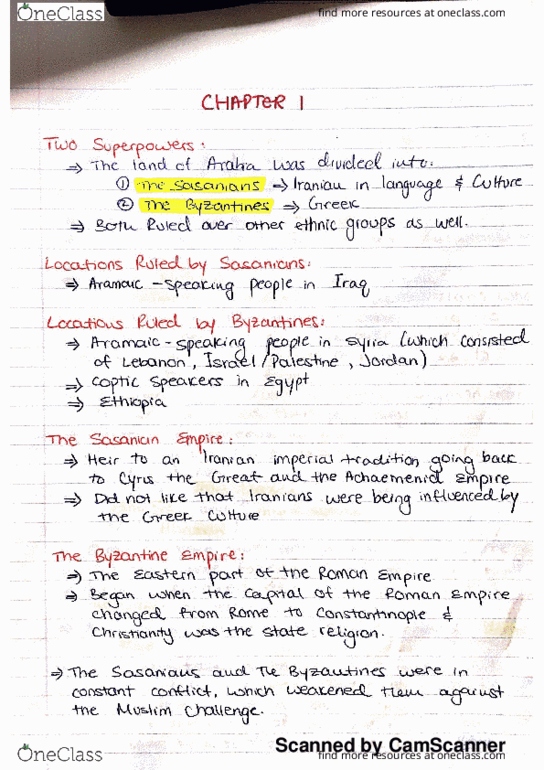 OneClass
find more resources at oneclass.com
CHAPTER 1
Two Superpowers:
⇒ The land of Arabia was divided into:
① The Sasanians ⇒ Iranian in language & Culture
② The Byzantines ⇒ Greek
⇒ Both Ruled over other ethnic groups as well.
Locations Ruled by Sasanians:
⇒ Aramaic-speaking people in Iraq
Locations Ruled by Byzantines:
⇒ Aramaic-speaking people in Syria (which consisted
of Lebanon, Israel/Palestine, Jordan)
⇒ Coptic Speakers in Egypt
⇒ Ethiopia
The Sasanian Empire:
⇒ Heir to an Iranian imperial tradition going back
to Cyrus the Great and the Achaemenid Empire
⇒ Did not like that Iranians were being influenced by
the Greek Culture
The Byzantine Empire:
⇒ The Eastern part of the Roman Empire
⇒ Began when the Capital of the Roman Empire
changed from Rome to Constantinople &
Christianity was the state religion.
⇒ The Sasanians and The Byzantines were in
constant conflict, which weakened them against
the Muslim Challenge.
Scanned by CamScanner
OneClass
find more resources at oneclass.com